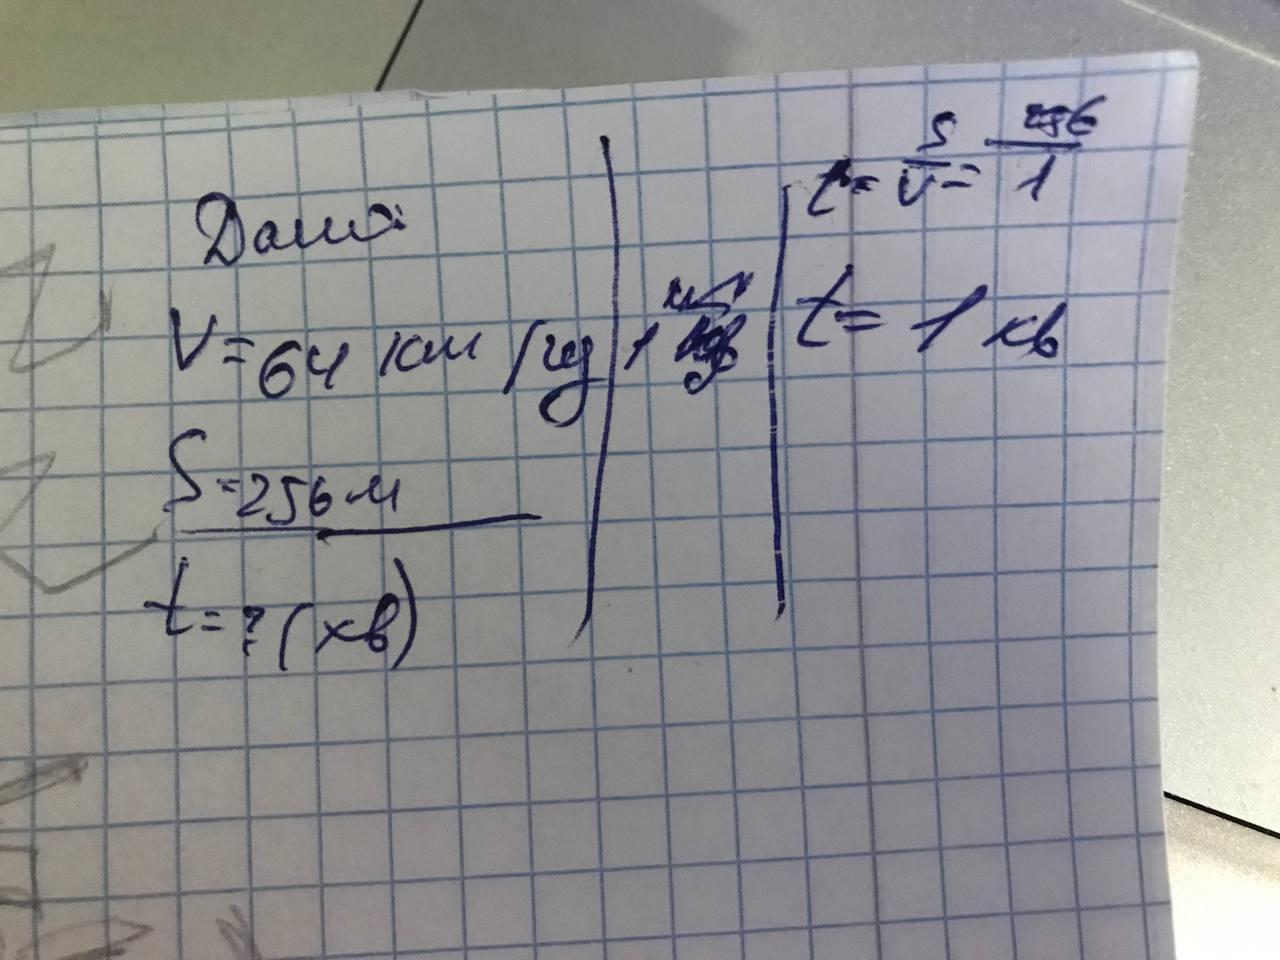 Дано:
V = 64 км/год
S = 256 м
t = ? (хв)
1
t = S/V = 256/1
t = 1 хв